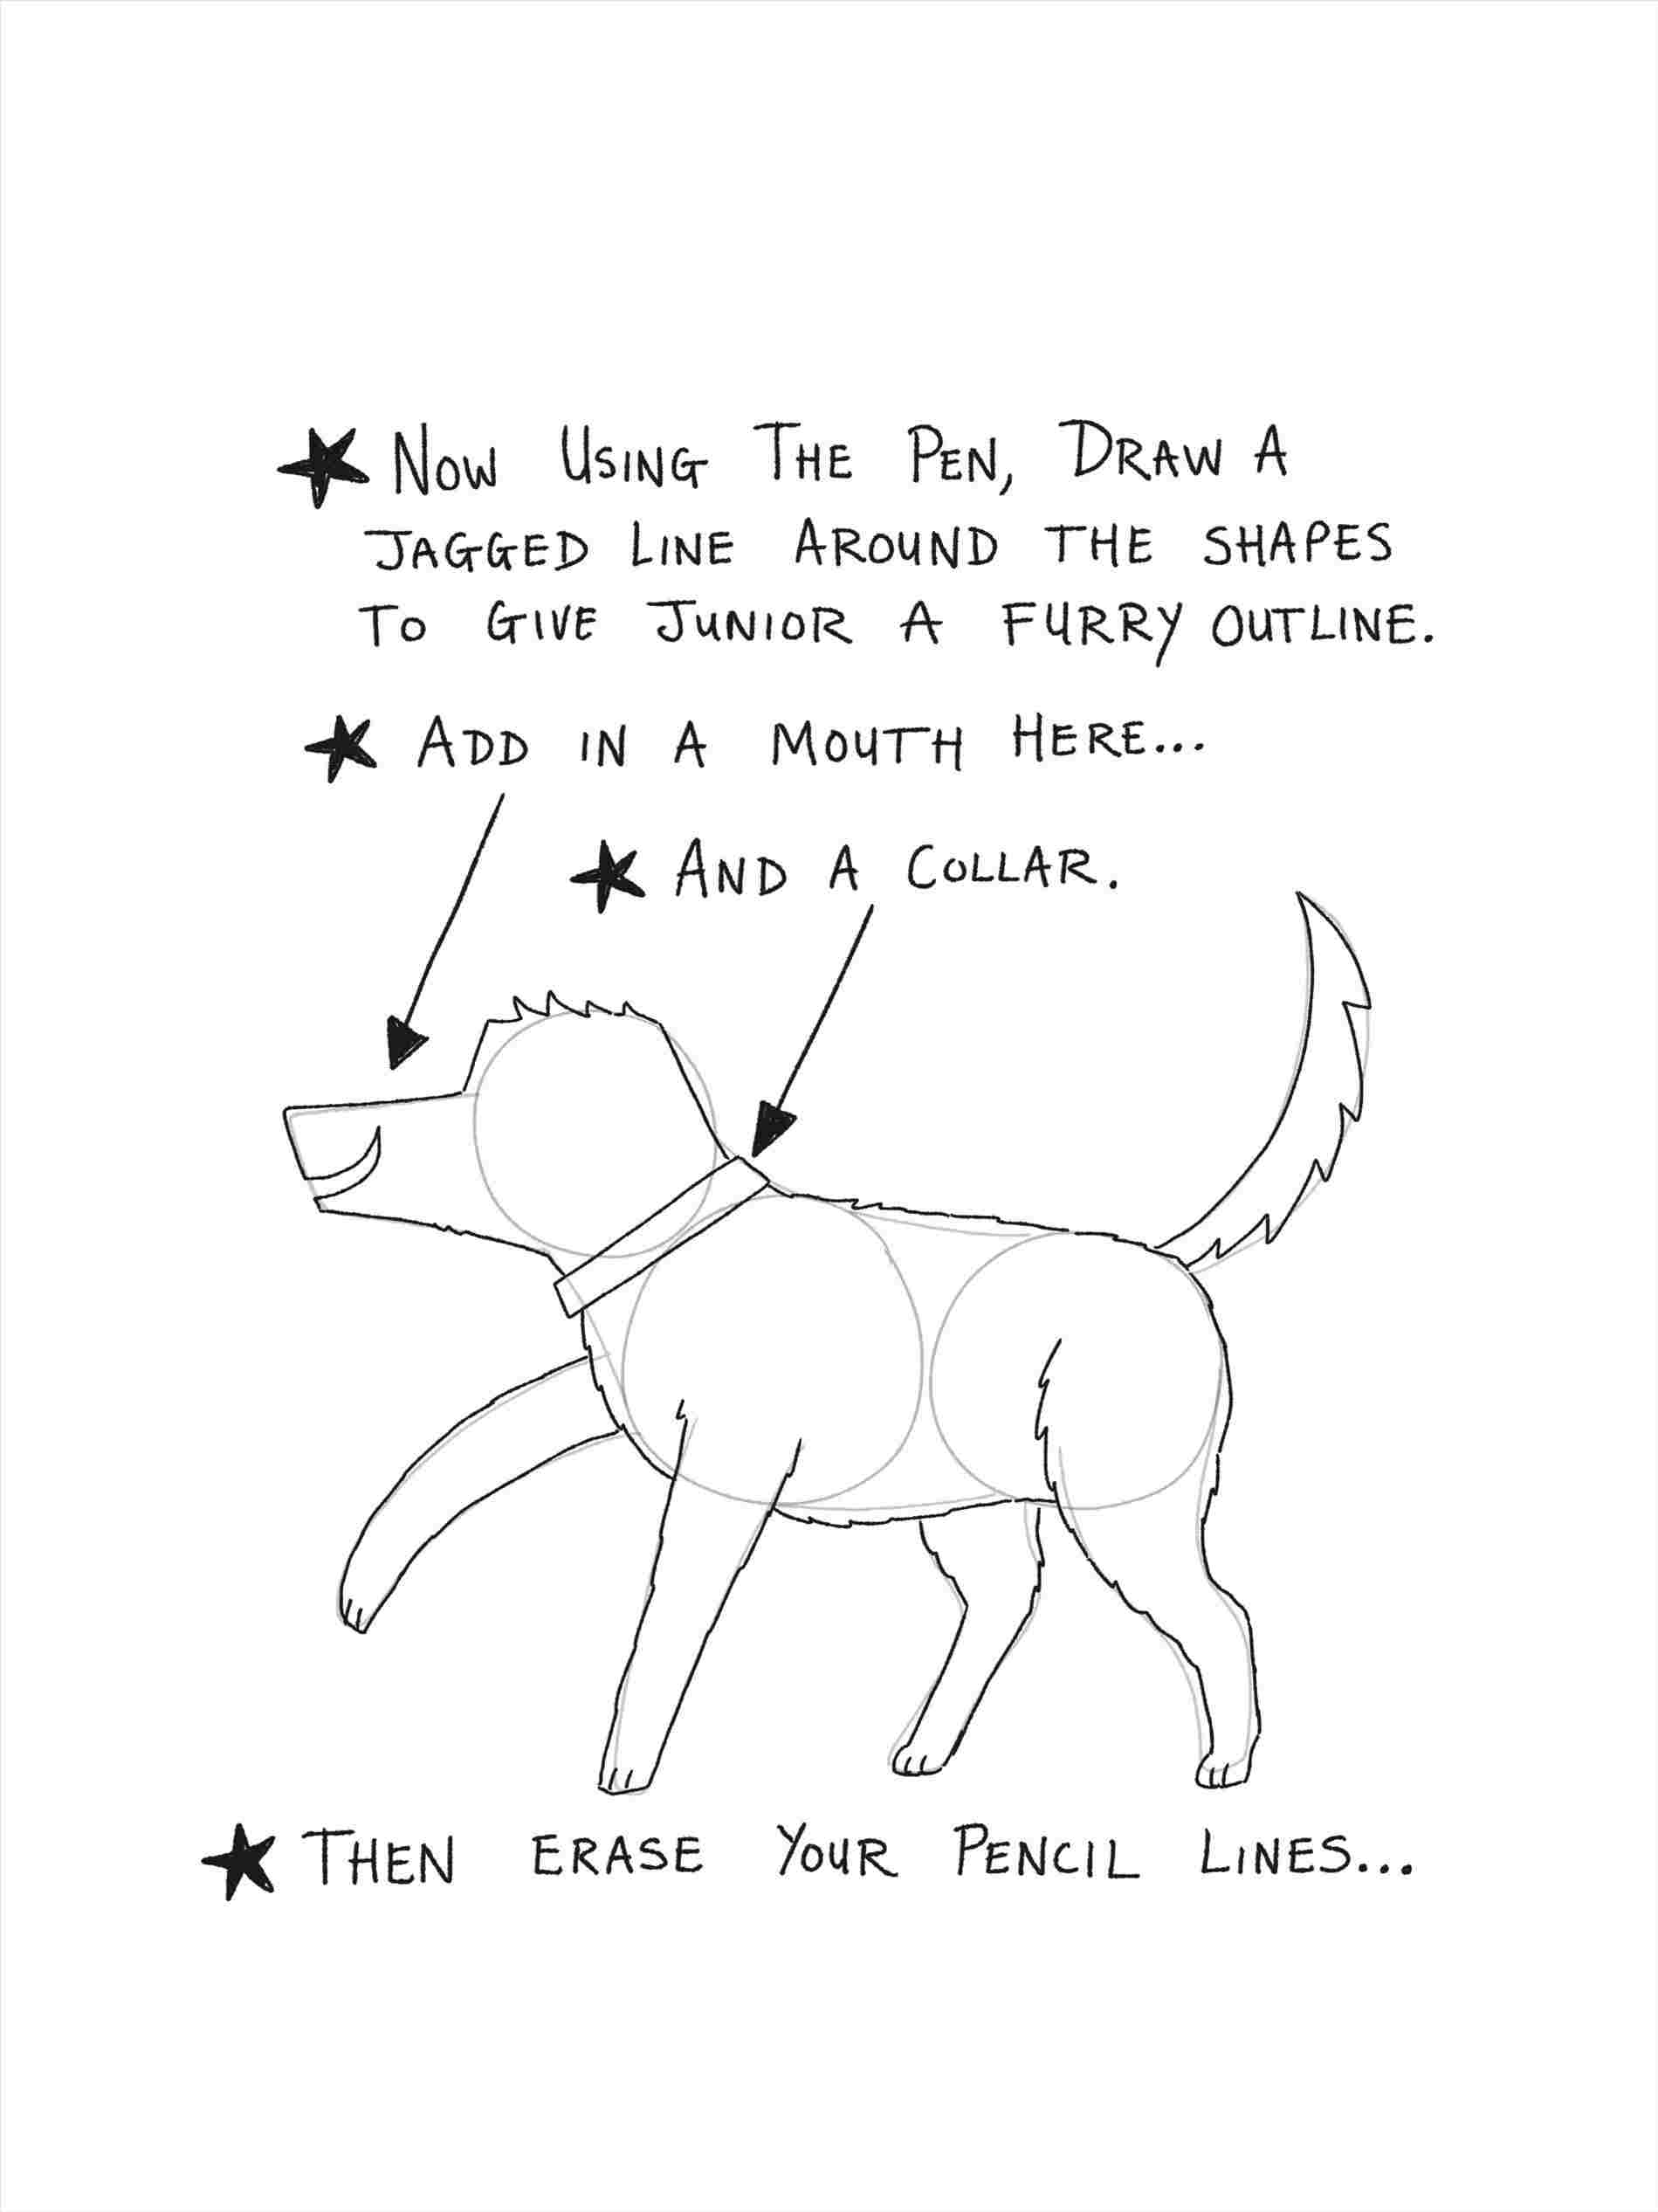 ★ Now Using The Pen, Draw A
Jagged Line Around The Shapes
To Give Junior A Furry Outline.
★ Add in A Mouth Here...
★ And A Collar.
★ Then Erase Your Pencil Lines...